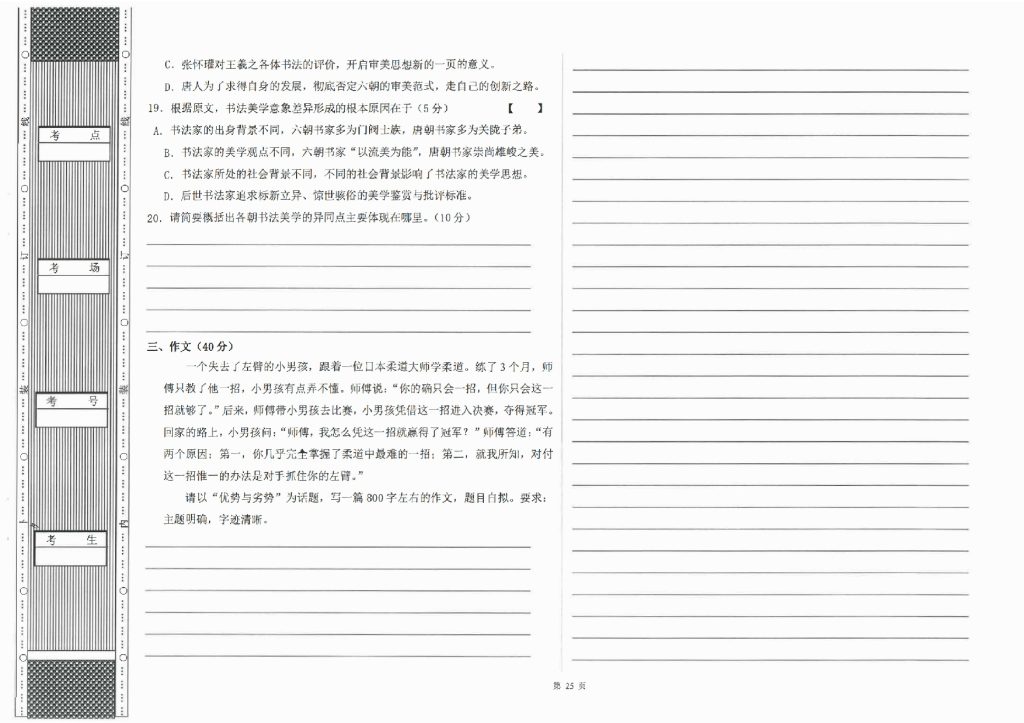 C. 张怀瓘对王羲之各体书法的评价，开启审美思想新的一页的意义。
D. 唐人为了求得自身的发展，彻底否定六朝的审美范式，走自己的创新之路。
19. 根据原文，书法美学意象差异形成的根本原因在于（5 分） 【 】
A. 书法家的出身背景不同，六朝书家多为门阀士族，唐朝书家多为关陇子弟。
B. 书法家的美学观点不同，六朝书家“以流美为能”，唐朝书家崇尚雄峻之美。
C. 书法家所处的社会背景不同，不同的社会背景影响了书法家的美学思想。
D. 后世书法家追求标新立异、惊世骇俗的美学鉴赏与批评标准。
20. 请简要概括出各朝书法美学的异同点主要体现在哪里。（10 分）
三、作文（40 分）
一个失去了左臂的小男孩，跟着一位日本柔道大师学柔道。练了 3 个月，师
傅只教了他一招，小男孩有点弄不懂。师傅说：“你的确只会一招，但你只会这一
招就够了。”后来，师傅带小男孩去比赛，小男孩凭借这一招进入决赛，夺得冠军。
回家的路上，小男孩问：“师傅，我怎么凭这一招就赢得了冠军？”师傅答道：“有
两个原因：第一，你几乎完全掌握了柔道中最难的一招；第二，就我所知，对付
这一招惟一的办法是对手抓住你的左臂。”
请以“优势与劣势”为话题，写一篇 800 字左右的作文，题目自拟。要求：
主题明确，字迹清晰。
第 25 页
考 点
考 场
考 号
考 生
线
订
装
上
线
订
装
内